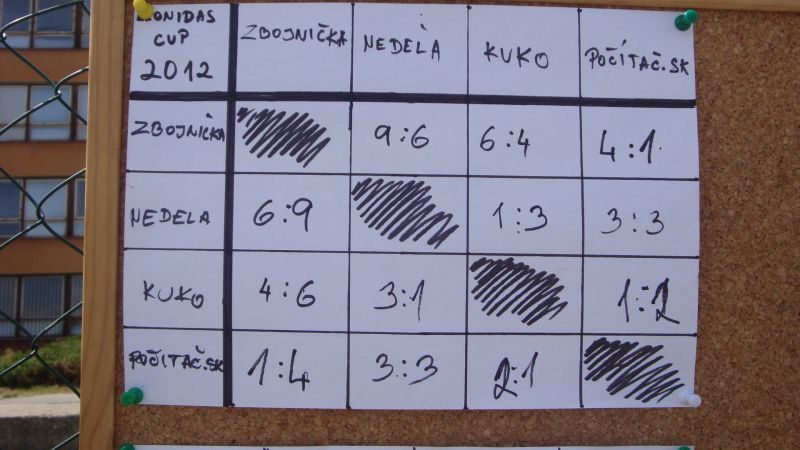 LEONIDAS
CUP
2012
ZBOJNIČKA NEDEĽA KUKO POČÍTAČ.SK
ZBOJNIČKA 9:6 6:4 4:1
NEDELA 6:9 1:3 3:3
KUKO 4:6 3:1 1:2
POČÍTAČ.SK 1:4 3:3 2:1